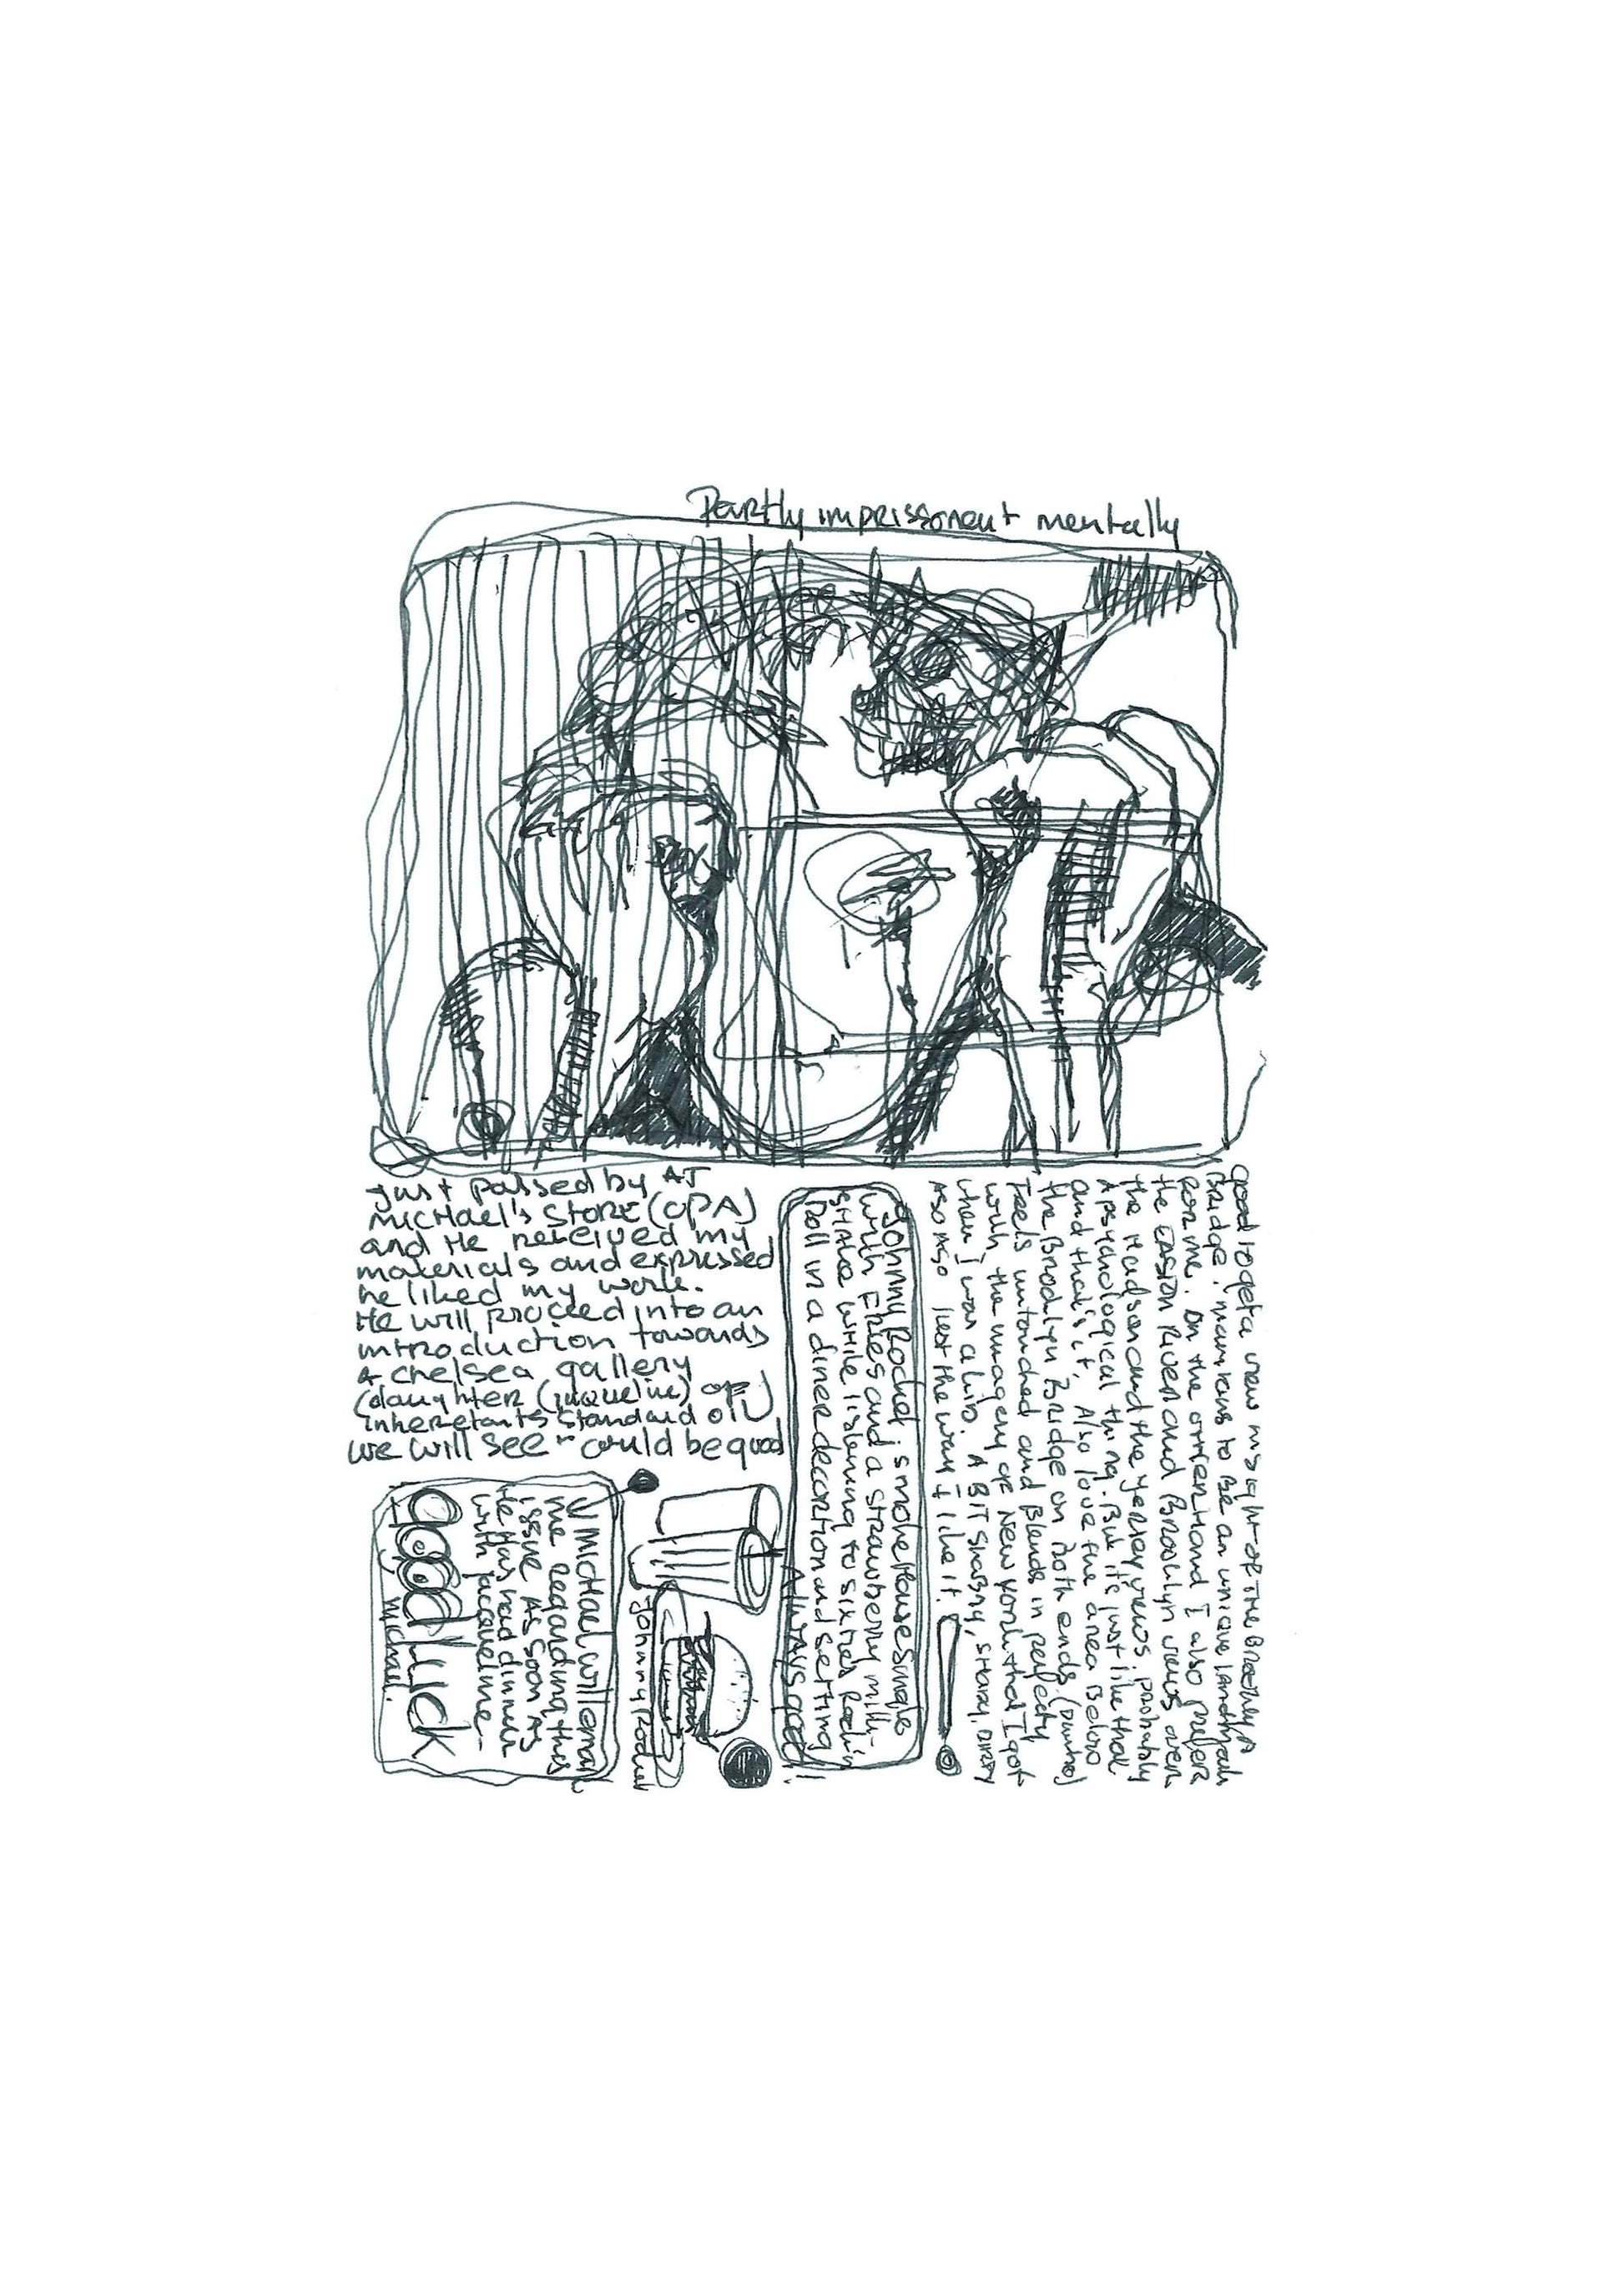 Partly imprissonent mentally
Just passed by AT
MICHael's STORE (OPA)
and He received my
materials and expressed
he liked my work.
He will proceed into an
introduction towards
A chelsea gallery
(daughter (jaqueline) of)
inheretants Standard OIL
we will see could be good
Johnny Rocket: smoke House Single
with FRIES and a strawberry milk-
SHAKE while listening to sixties Rock in
Roll in a diner decortion and setting
AlWAYS good!!
good to get a view insight of THE Brooklyn
Bridge. maintains to Be an unique landmark
FOR me. On the other Hand I also prefer
the EASTON River and Brooklyn views over
the Hudson and the yersey views. probably
A psychological thing. But it's just like that
and that is it. Also love the area Below
the Brooklyn Bridge on Both ends.
Feels untouched and Blends in perfectly
with the imagery of New York that I got
when I was a kid. A BIT SHABBY, SHADY, DIRTY
ASO ASO just the way I like it.
Johnny Rocket
MICHael will email
me regarding this
issue AS soon AS
He Has Had dinner
with Jacqueline.
good luck
Michael.